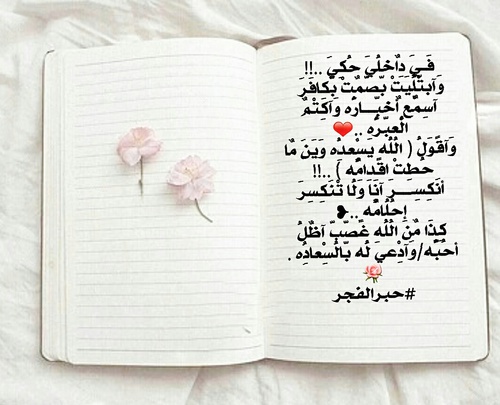 فَـيَ دٌاٌخلُيَ حُكيَ ..!!
وَآبتًلُيَتْ بًصٌمٌتْ بًكافَرَ
آسِمٌع أخبًــارٌه وَآكتْمٌ
الُعبًرٌه ..❤
وَآقًوَلُ ( اللُه يَسِعدٌه وَيَنَ مٌا
حُطتْ اقًدٌامٌه ) ..!!
أنَكِسِــرَ آنَا وَلُا تْنَكسِرَ
احُلُامٌه ..❥
كذَا مٌنَ اللُه غًصٌبً آظلُ
أحُبًه/وَآدٌعيَ لُه بًالُسِعادٌه .
🌹
#حبرالفجر